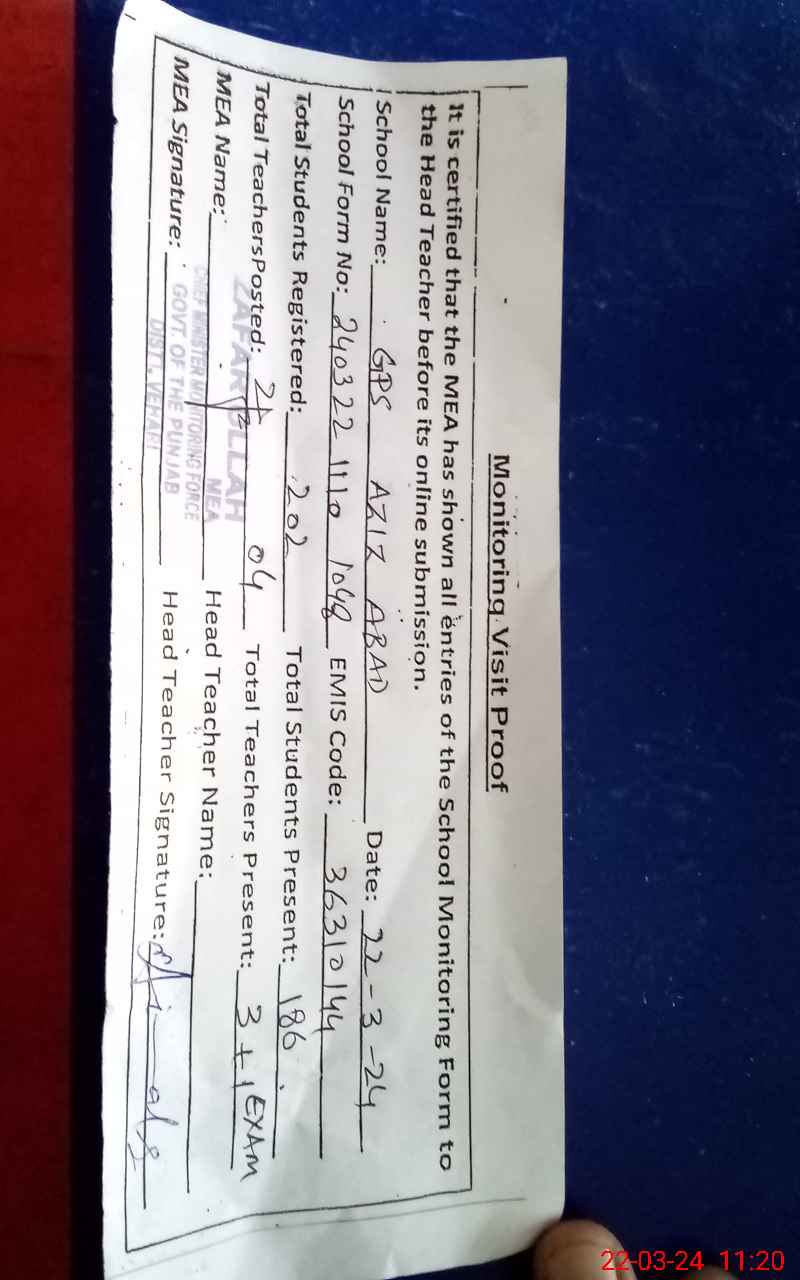 Monitoring Visit Proof
It is certified that the MEA has shown all entries of the School Monitoring Form to
the Head Teacher before its online submission.
School Name: GPS AZIZ ABAD Date: 22-3-24
School Form No: 240322 1110 1048 EMIS Code: 36310144
Total Students Registered: 202 Total Students Present: 186
Total TeachersPosted: 04 Total Teachers Present: 3+1 EXAM
MEA Name: Head Teacher Name:
MEA Signature: Head Teacher Signature:
ZAFAR ULLAH
MEA
CHIEF MINISTER MONITORING FORCE
GOVT. OF THE PUNJAB
DISTT. VEHARI
22-03-24 11:20